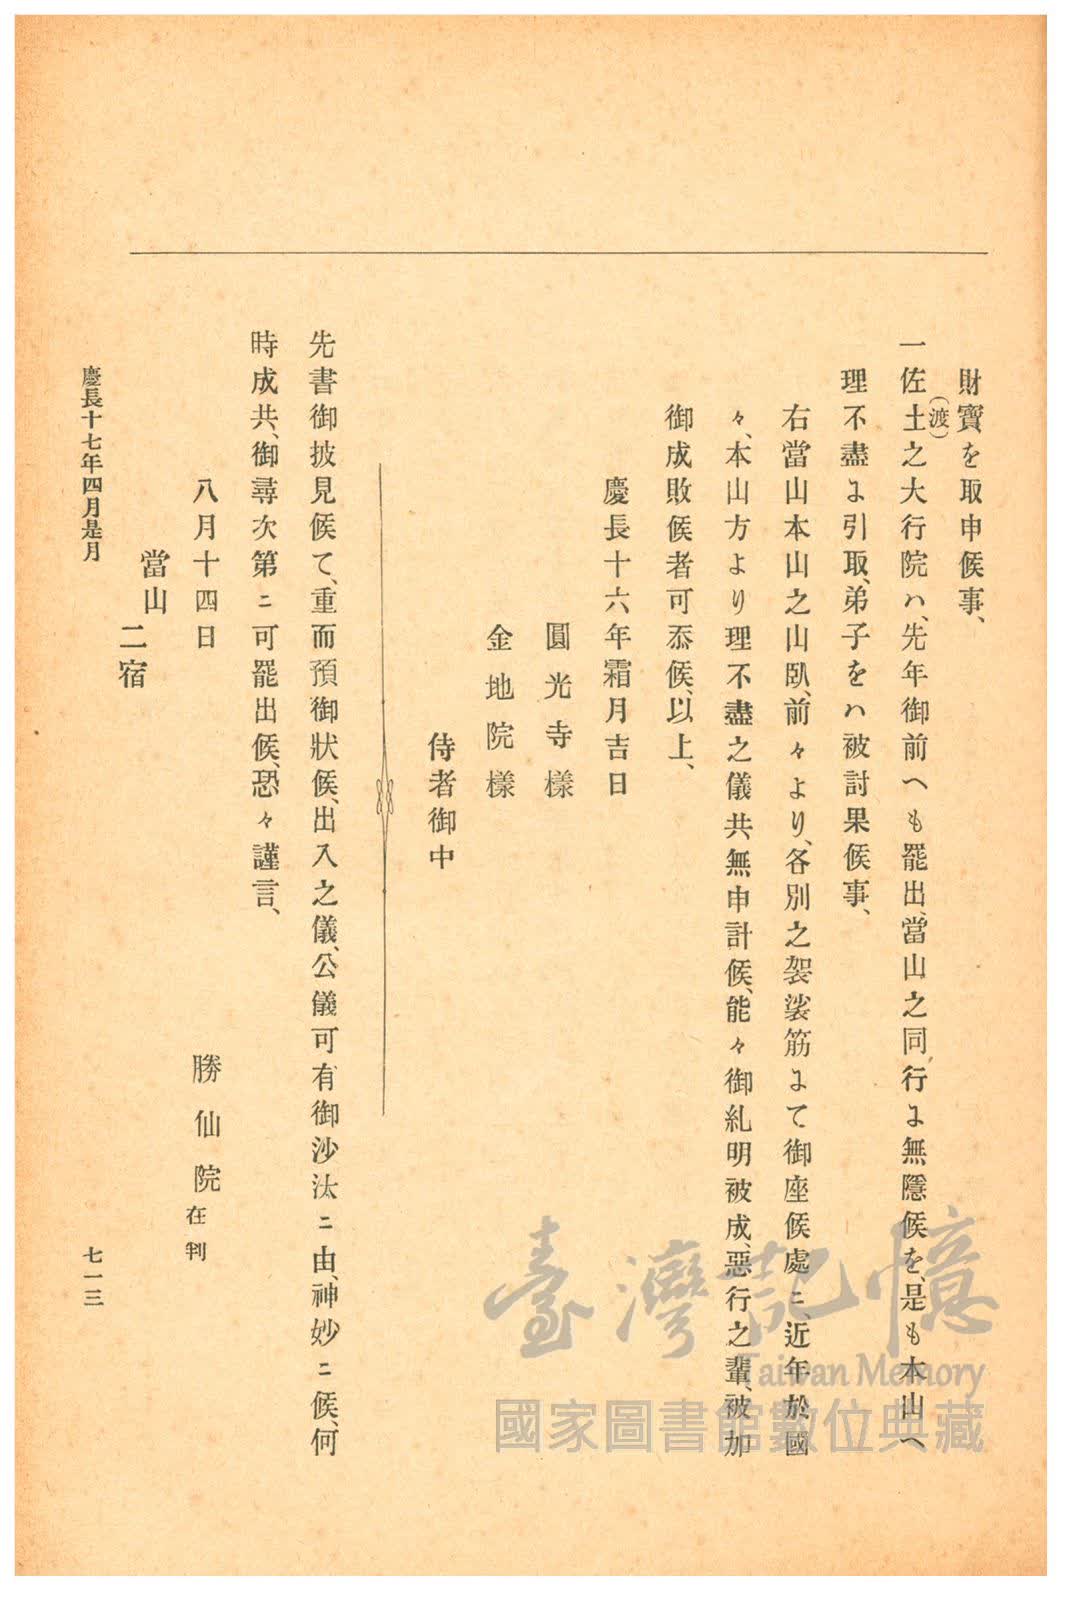 財寶を取申候事、
一佐土(渡)之大行院ハ、先年御前へも罷出、當山之同行よ無隱候を、是も本山へ
理不盡よ引取、弟子をハ被討果候事、
右當山本山之山臥、前々より、各別之袈裟筋よて御座候處ニ、近年於國
々、本山方より理不盡之儀共、無申計候、能々御糺明被成、惡行之輩、被加
御成敗候者可忝候、以上、
慶長十六年霜月吉日
圓光寺樣
金地院樣
侍者御中
先書御披見候て、重而預御狀候、出入之儀、公儀可有御沙汰ニ由、神妙ニ候、何
時成共、御尋次第ニ可罷出候、恐々謹言、
八月十四日 勝仙院在判
當山二宿
慶長十七年四月是月 七一三
臺灣記憶
Taiwan Memory
國家圖書館數位典藏